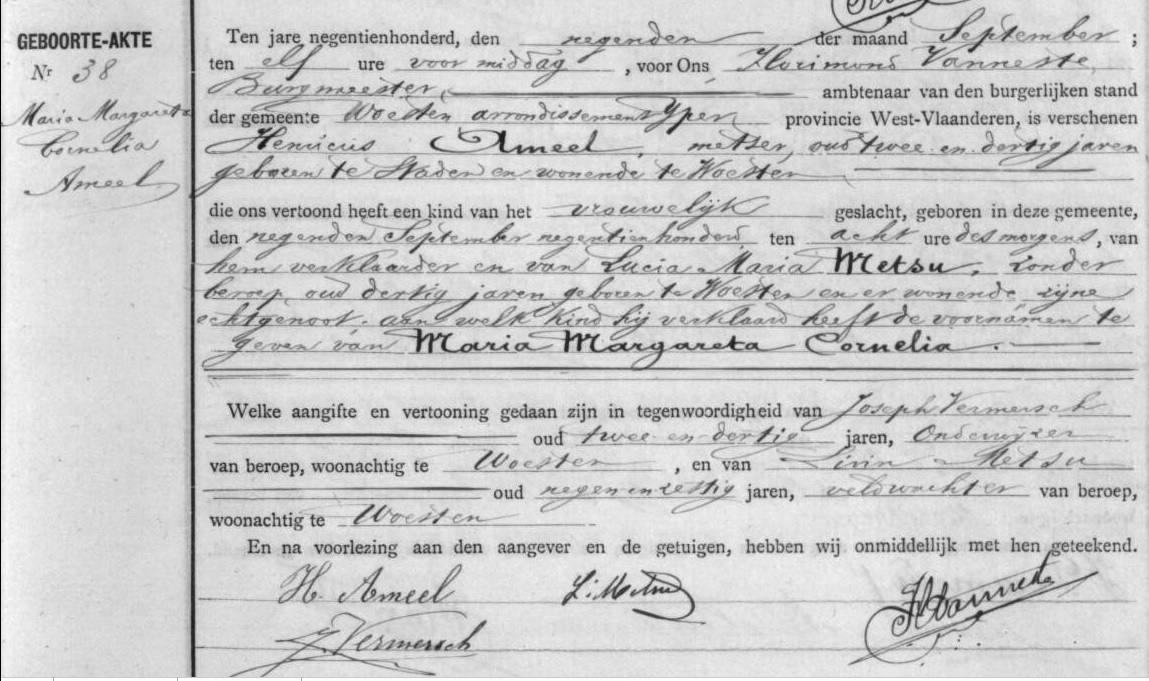 GEBOORTE-AKTE
Nr 38
Maria Margareta
Cornelia
Ameel
Ten jare negentienhonderd, den negenden der maand September ;
ten elf ure voor middag , voor Ons Florimond Vanneste,
Burgmeester, ambtenaar van den burgerlijken stand
der gemeente Woesten arrondissement Yper provincie West-Vlaanderen, is verschenen
Henricus Ameel, metser, oud twee en dertig jaren
geboren te Staden en wonende te Woesten
die ons vertoond heeft een kind van het vrouwelijk geslacht, geboren in deze gemeente,
den negenden September negentienhonderd, ten acht ure des morgens, van
hem verklaarder en van Lucia Maria Metsu, zonder
beroep, oud dertig jaren, geboren te Woesten en er wonende, zijne
echtgenoot, aan welk kind hij verklaard heeft de voornamen te
geven van Maria Margareta Cornelia.
Welke aangifte en vertooning gedaan zijn in tegenwoordigheid van Joseph Vermersch
oud twee en dertig jaren, Onderwijzer
van beroep, woonachtig te Woesten , en van Livin Metsu
oud negen en zestig jaren, veldwachter van beroep,
woonachtig te Woesten
En na voorlezing aan den aangever en de getuigen, hebben wij onmiddellijk met hen geteekend.
H. Ameel L. Metsu
J. Vermersch